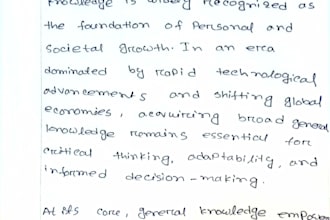 knowledge is widely recognized as
the foundation of personal and
societal growth. In an era
dominated by rapid technological
advancements and shifting global
economies, acquiring broad general
knowledge remains essential for
critical thinking, adaptability, and
informed decision-making.
At its core, general knowledge